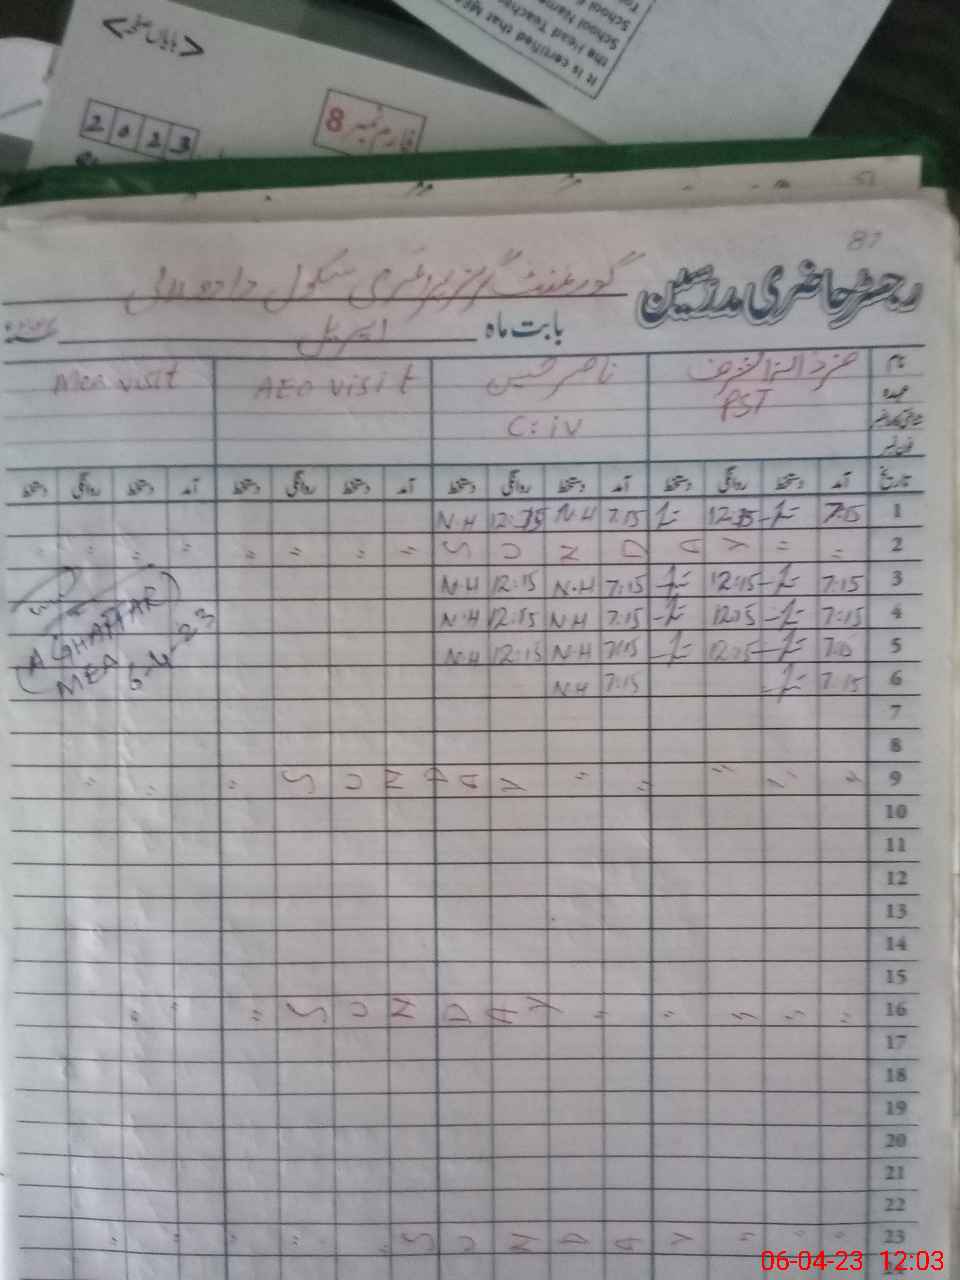 It is certified that
the Head
School Name
School
< بایاں صفحہ >
2 0 2 3
فارم نمبر 8
51
87
رجسٹر حاضری مدرسین گورنمنٹ گرلز پرائمری سکول
بابت ماہ اپریل
نام ناصر حسین AEO visit Mea visit
عہدہ PST
C:iv
تاریخ آمد دستخط روانگی دستخط آمد دستخط روانگی دستخط آمد دستخط روانگی دستخط آمد دستخط روانگی دستخط
1 7:15 12:15 7:15 N.H 12:15 N.H
2 " " S U N D A Y " " " " " " " "
3 7:15 12:15 7:15 N.H 12:15 N.H
4 7:15 12:15 7:15 N.H 12:15 N.H
5 7:15 12:15 7:15 N.H 12:15 N.H
6 7:15 7:15 N.H
(A GHAFFAR)
MEA
6-4-23
7
8
9 " " " " " S U N D A Y " " "
10
11
12
13
14
15
16 " " " " " S U N D A Y " " "
17
18
19
20
21
22
23 " " " S U N D A Y " " " " "
24
06-04-23 12:03